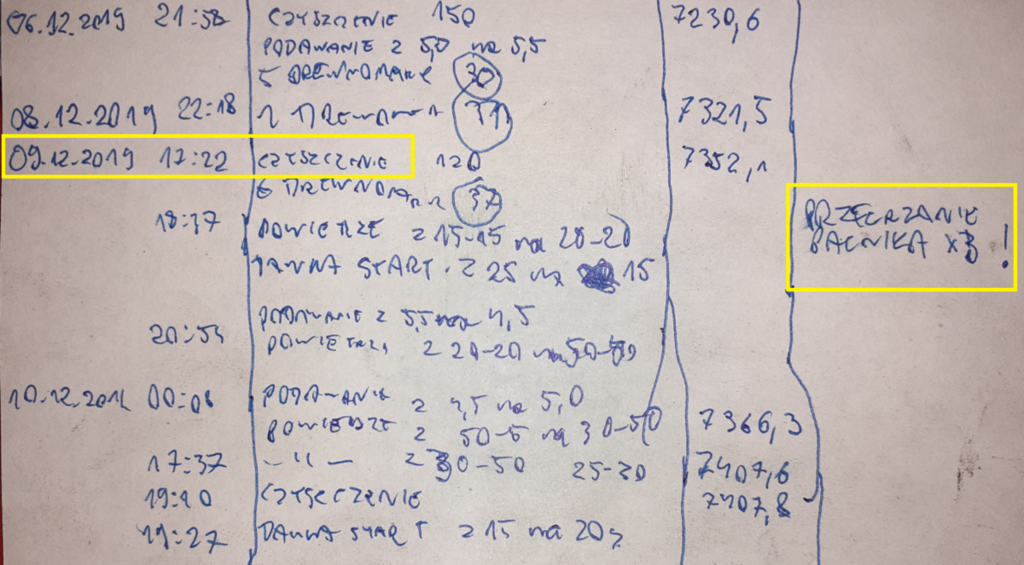 06.12.2019 21:58 CZYSZCZENIE 150 7230,6
PODAWANIE Z 5,0 na 5,5
5 DREWNOMAKR 30
08.12.2019 22:18 7321,5
09.12.2019 17:22 CZYSZCZENIE 120 7352,1
6 37
PRZEGRZANIE
18:37 POWIETRZE z 15-15 na 20-20
PALNIKA X3 !
START. Z 25 na 15
PODAWANIE Z 5,5 na 4,5
20:54 POWIETRZE z 20-20 na
10.12.201 00:08 PODAWANIE z 4,5 na 5,0
POWIETRZE z 50-5 na 30-50 7366,3
17:37 -"- z 30-50 25-30 7407,6
19:20 CZYSZCZENIE 7407,8
19:27 DAWKA START z 15 na 20